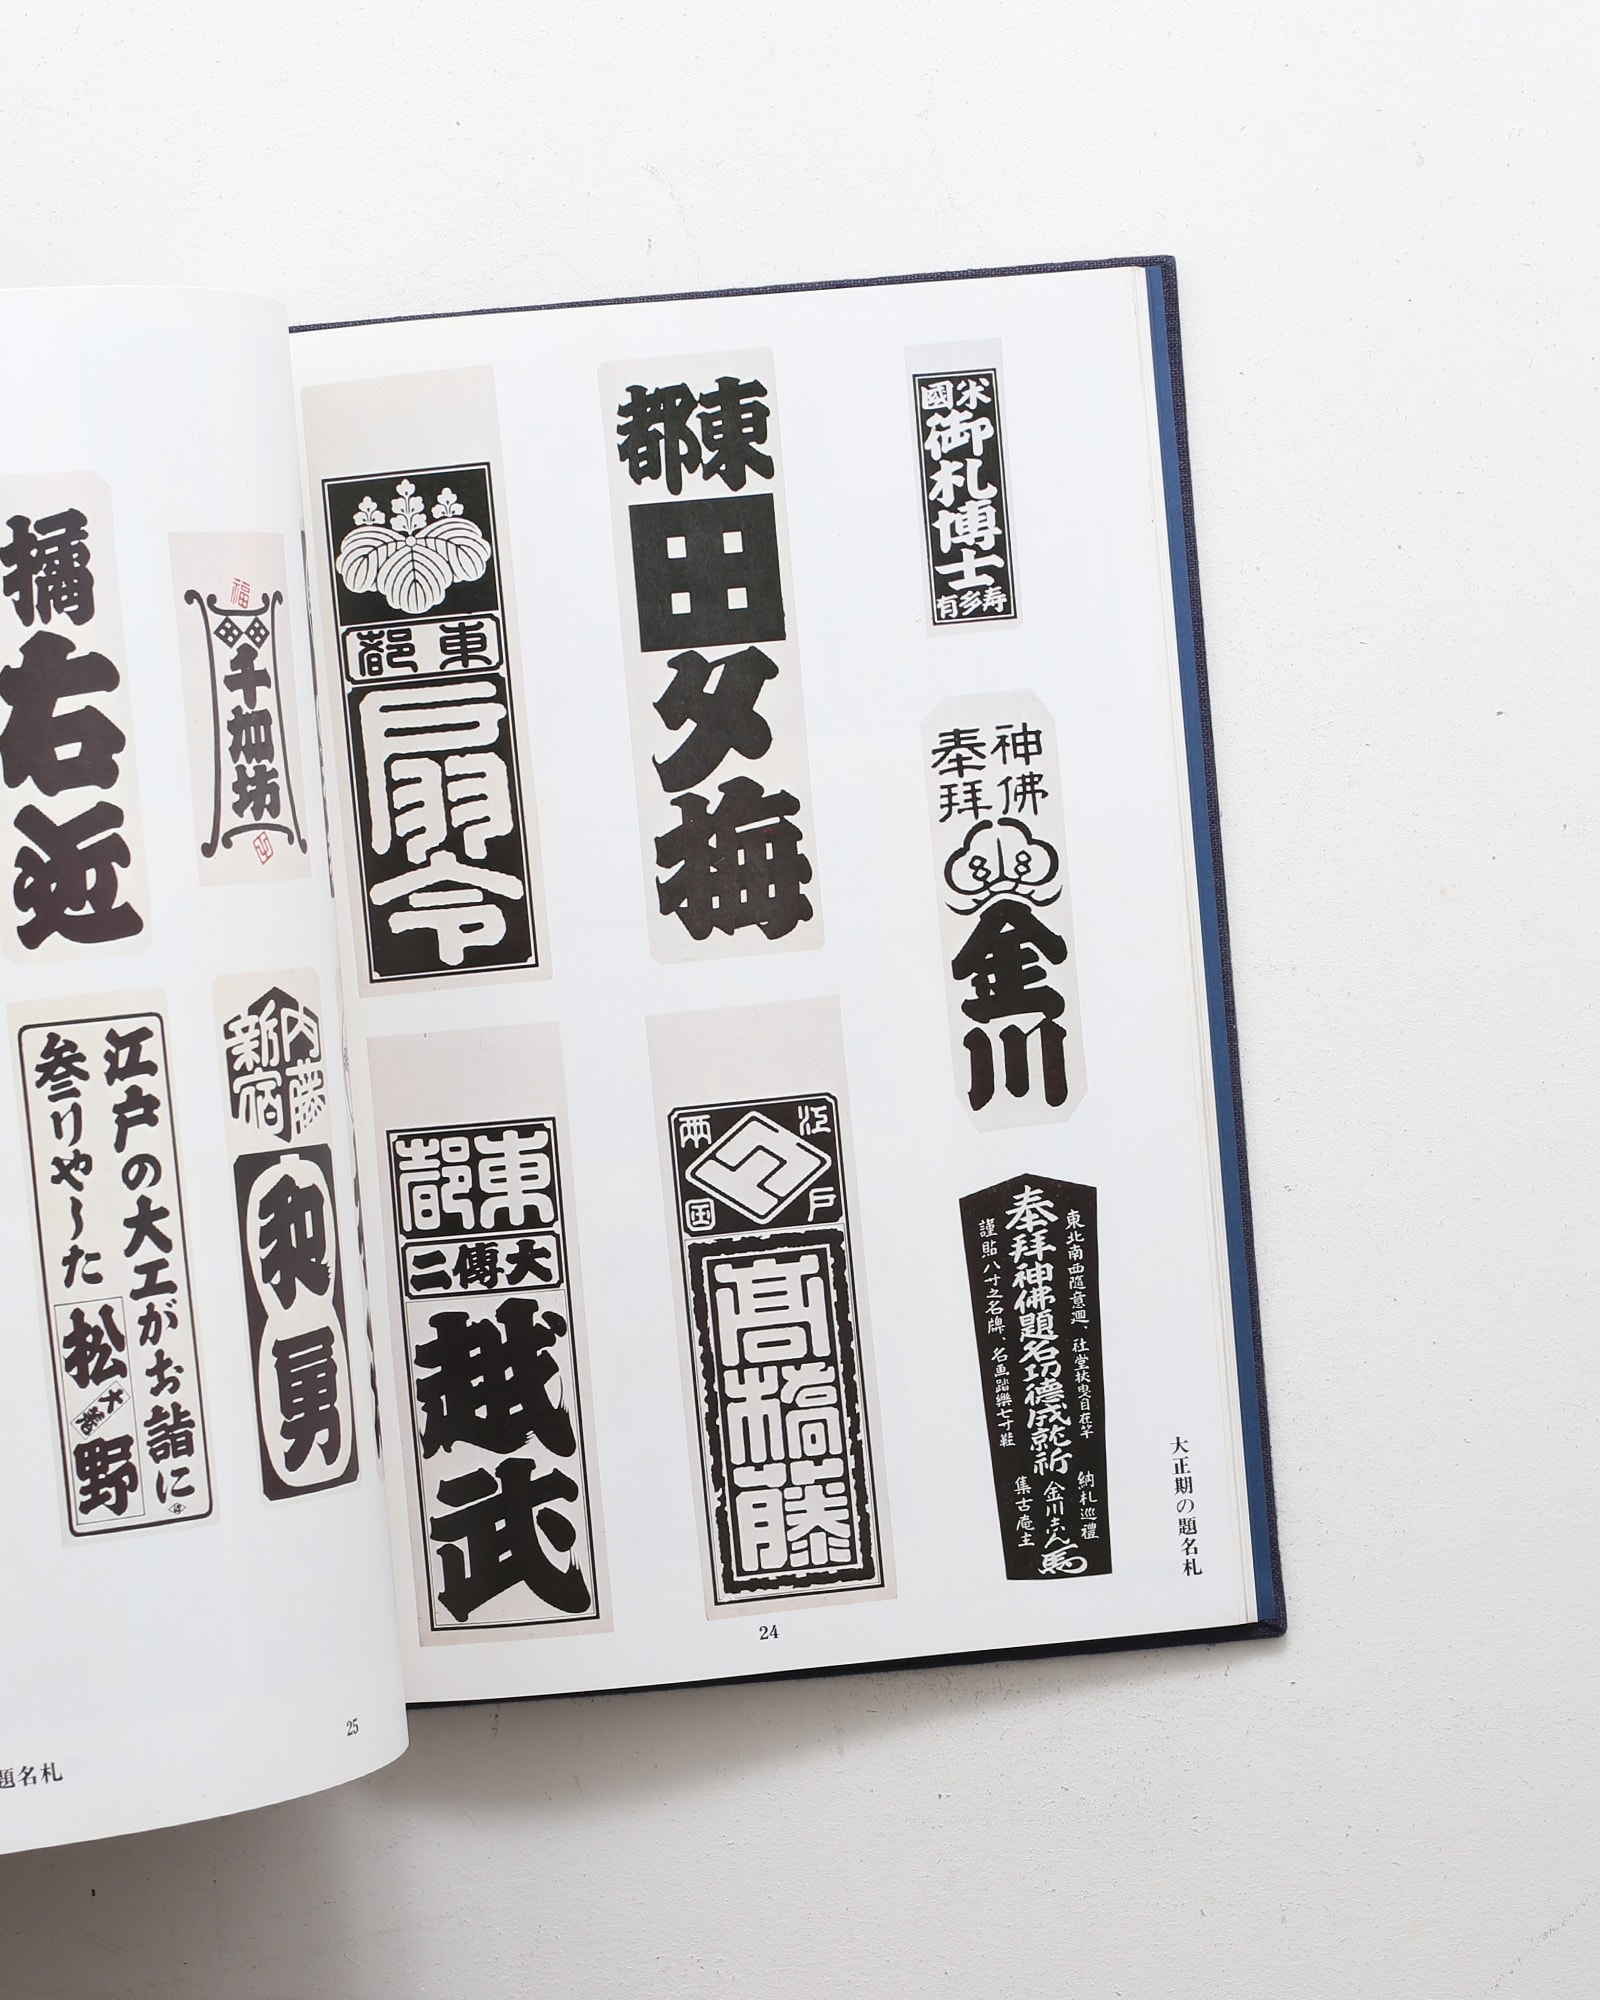 米國
御札博士
寿多有
神佛
奉拜
金川
東北南西隨意廻、社堂杖曳自在竿
奉拜神佛題名功德成就祈
謹貼八寸之名牌、名画踏樂七寸鞋
納札巡禮
金川志ん馬
集古庵主
大正期の題名札
東都
田
夕梅
江戸
両国
高橋藤
24
東都
扇令
東都
大傳二
越武
福
千加坊
内藤
新宿
和勇
橘右近
江戸の大工がお詣に
参りやした
松
大
野
25
題名札